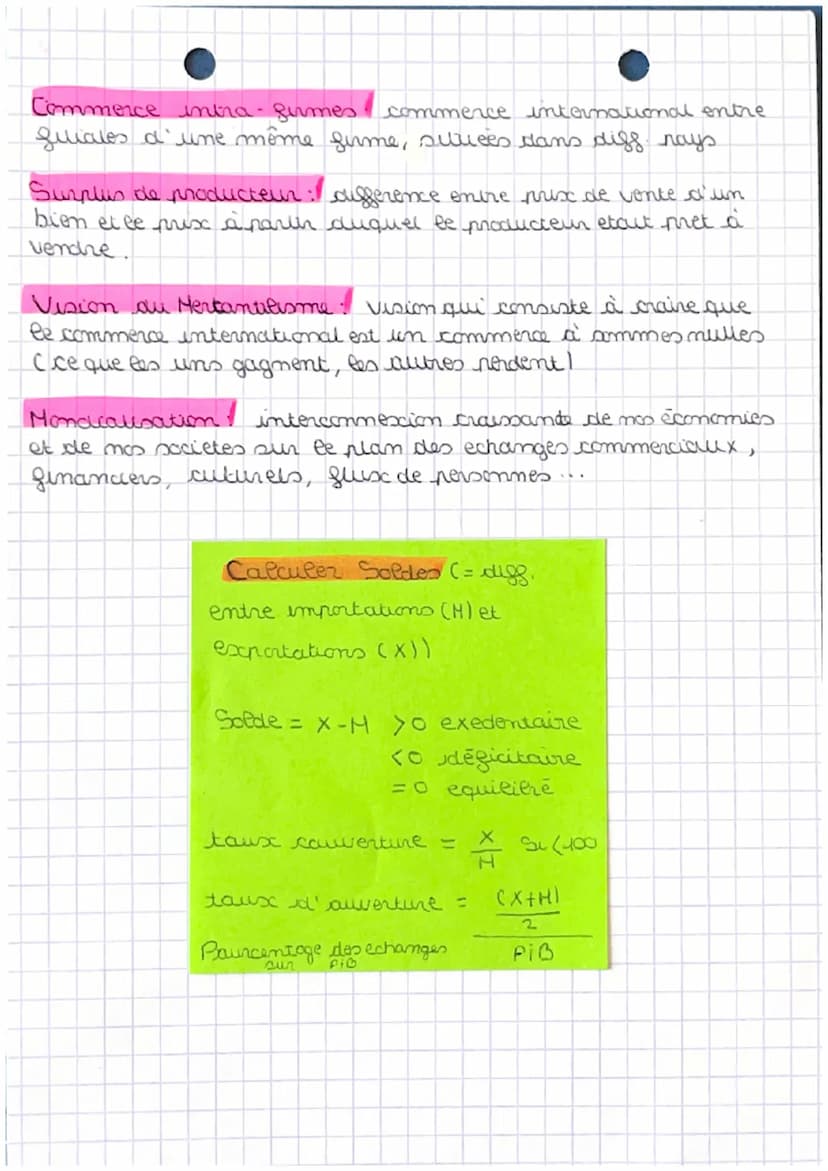 Commerce intra-firmes : commerce international entre
filiales d'une même firme, situées dans diff. pays
Surplus de producteur : différence entre prix de vente d'un
bien et le prix à partir duquel le producteur etait prêt à
vendre.
Vision du Mercantilisme : vision qui consiste à croire que
le commerce international est un commerce à sommes nulles
(ce que les uns gagnent, les autres perdent)
Mondialisation : interconnexion croissante de nos économies
et de nos societes sur le plan des echanges commerciaux,
financiers, culturels, flux de personnes ...
Calculer Soldes (= diff.
entre importations (M) et
exportations (X))
Solde = X-M >0 exedentaire
<0 déficitaire
=0 equilibré
taux couverture = X/M Si <100
taux d'ouverture = ((X+M)/2)/PIB
Pourcentage des echanges
sur PIB